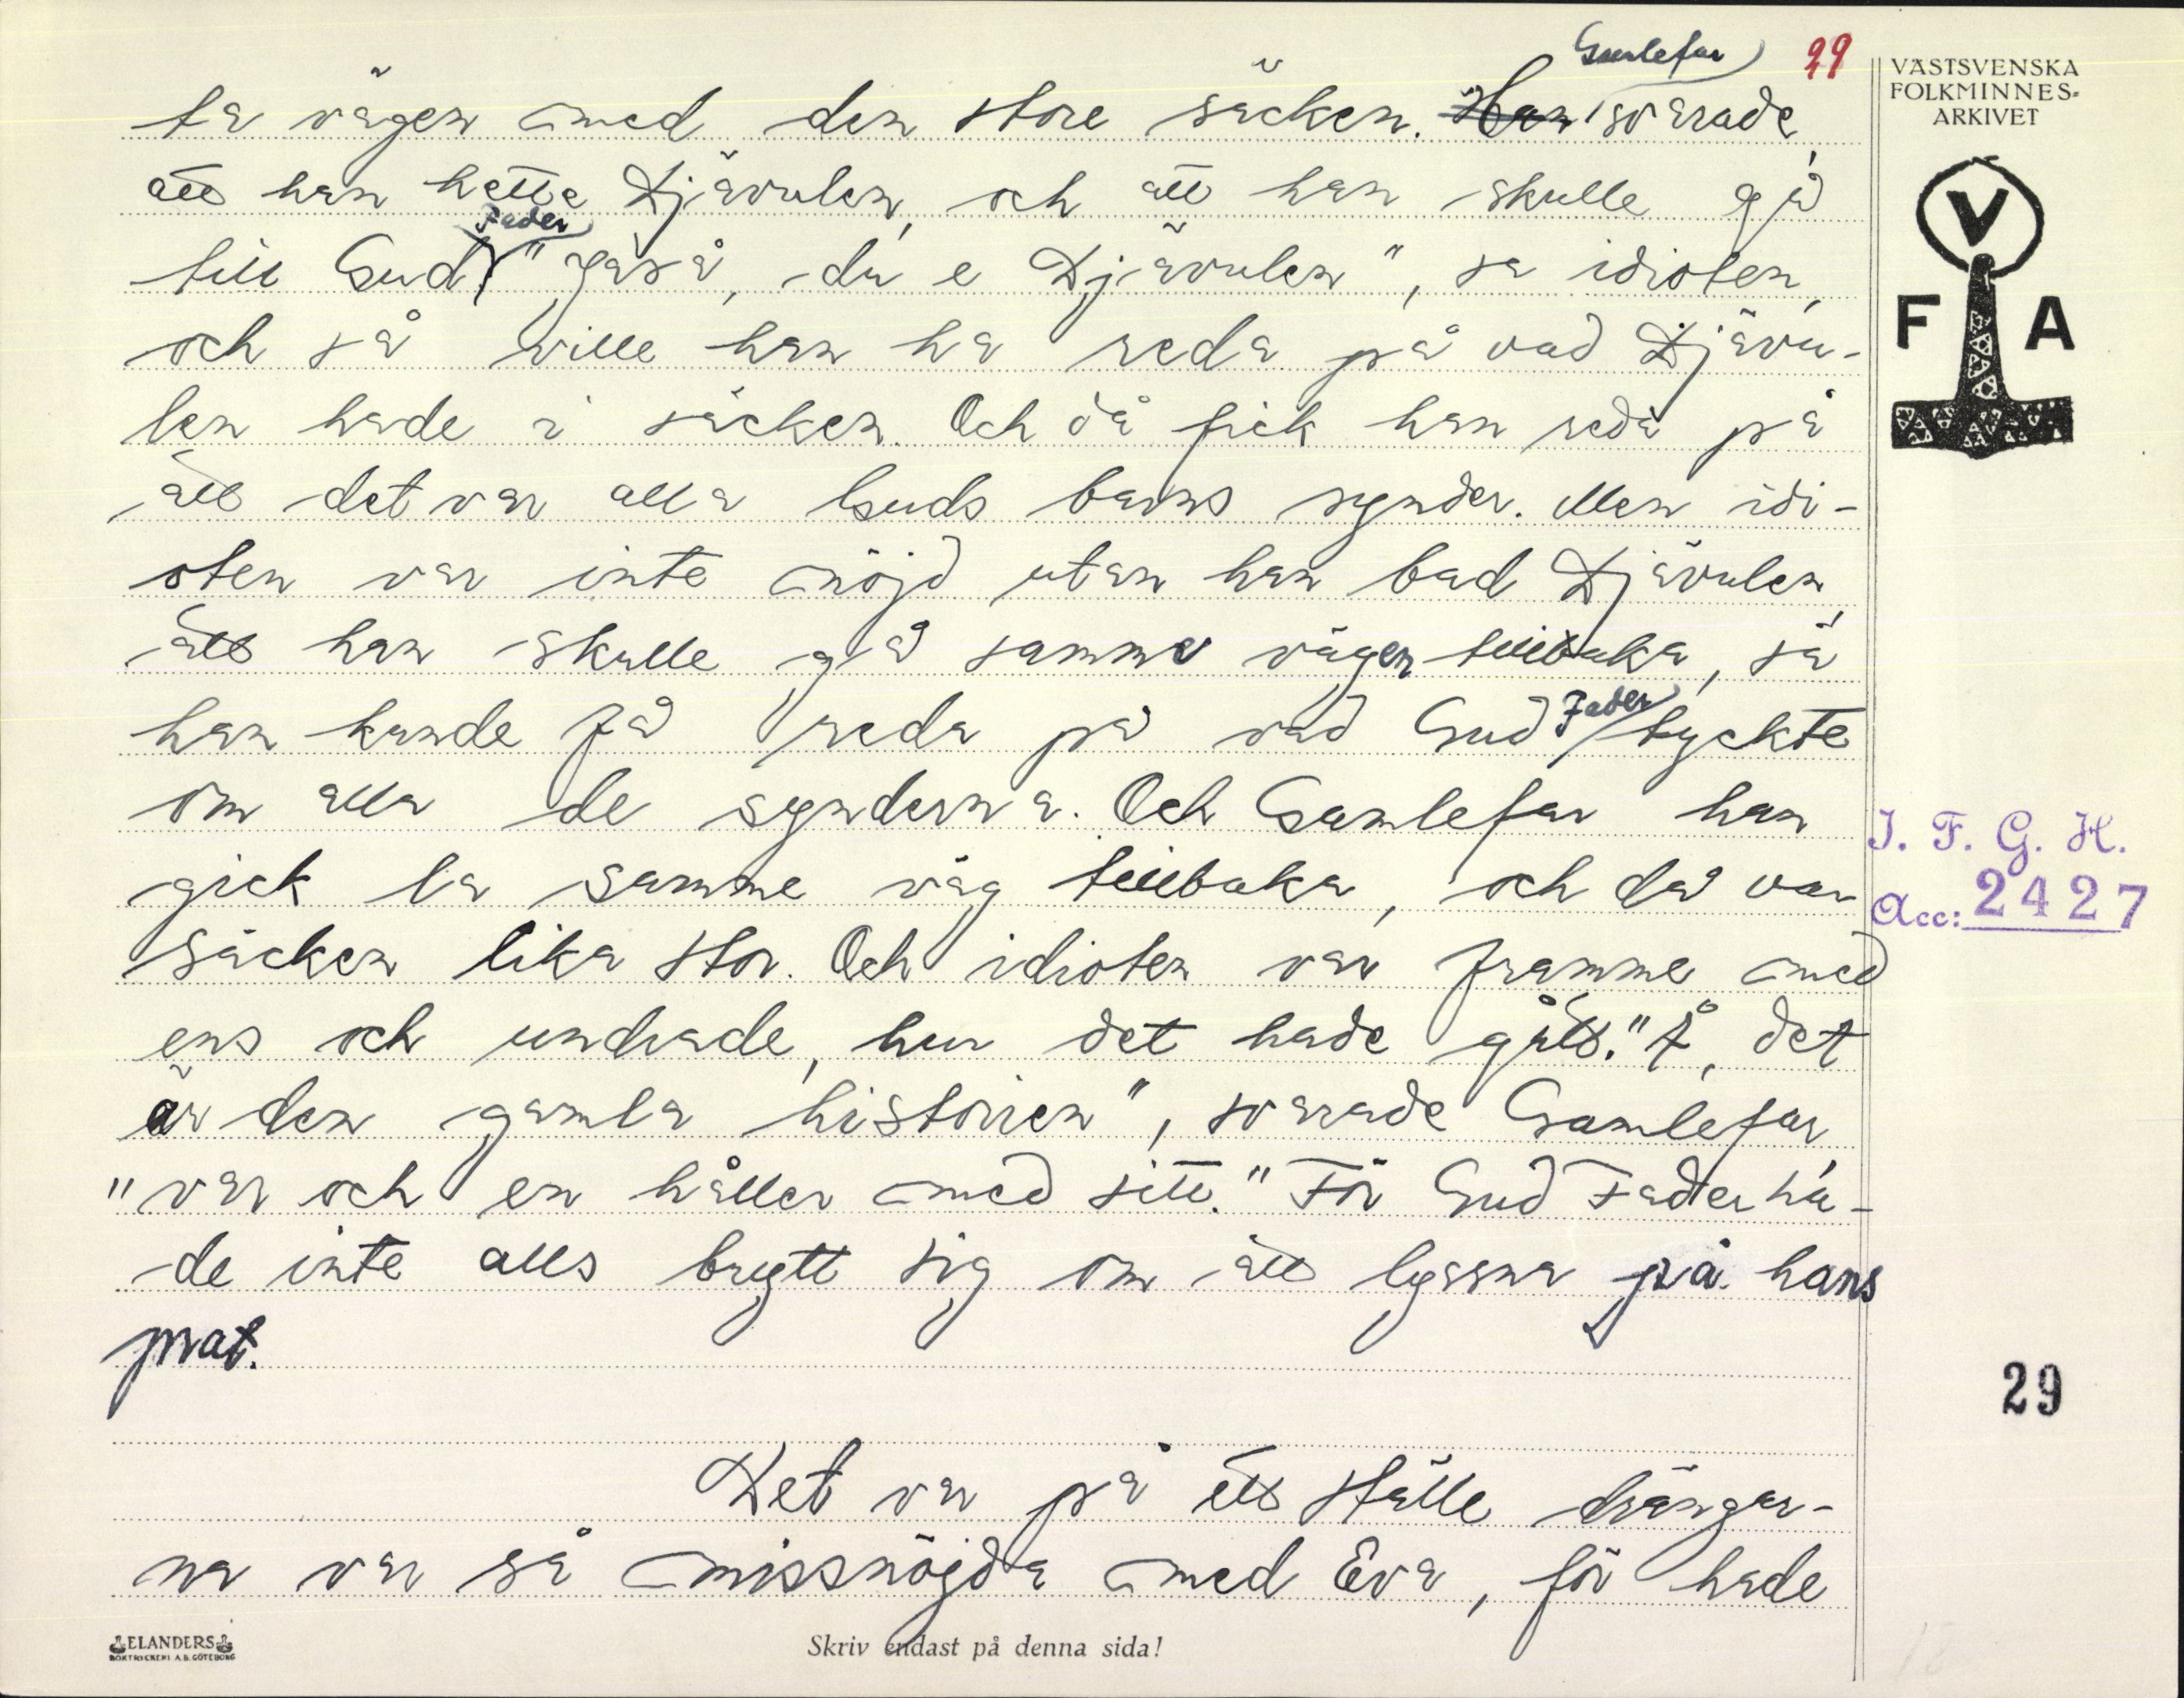 Gamlefar 29
ta vägen med den store säcken. Han svarade,
att han hette Djävulen, och att han skulle gå
Fader
till Gud. "Jaså, du e Djävulen", sa idioten,
och så ville han ha reda på vad Djävu-
len hade i säcken. Och då fick han reda på
att det var alla Guds barns synder. Men idi-
oten var inte nöjd utan han bad Djävulen,
att han skulle gå samme vägen tillbaka, så
Fader
han kunde få reda på vad Gud tyckte
om alla de synderna. Och Gamlefar han
gick la samme väg tillbaka, och då var
säcken lika stor. Och idioten var framme med
ens och undrade, hur det hade gått. "Å, det
är den gamla historien", svarade Gamlefar
"var och en håller med sitt." För Gud Fader ha-
de inte alls brytt sig om att lyssna på hans
prat.
Det var på ett ställe drängar-
na var så missnöjda med Eva, för hade
VÄSTSVENSKA
FOLKMINNES-
ARKIVET
V
F A
I. F. G. H.
Acc: 2427
29
ELANDERS
BOKTRYCKERI A.B. GÖTEBORG
Skriv endast på denna sida!